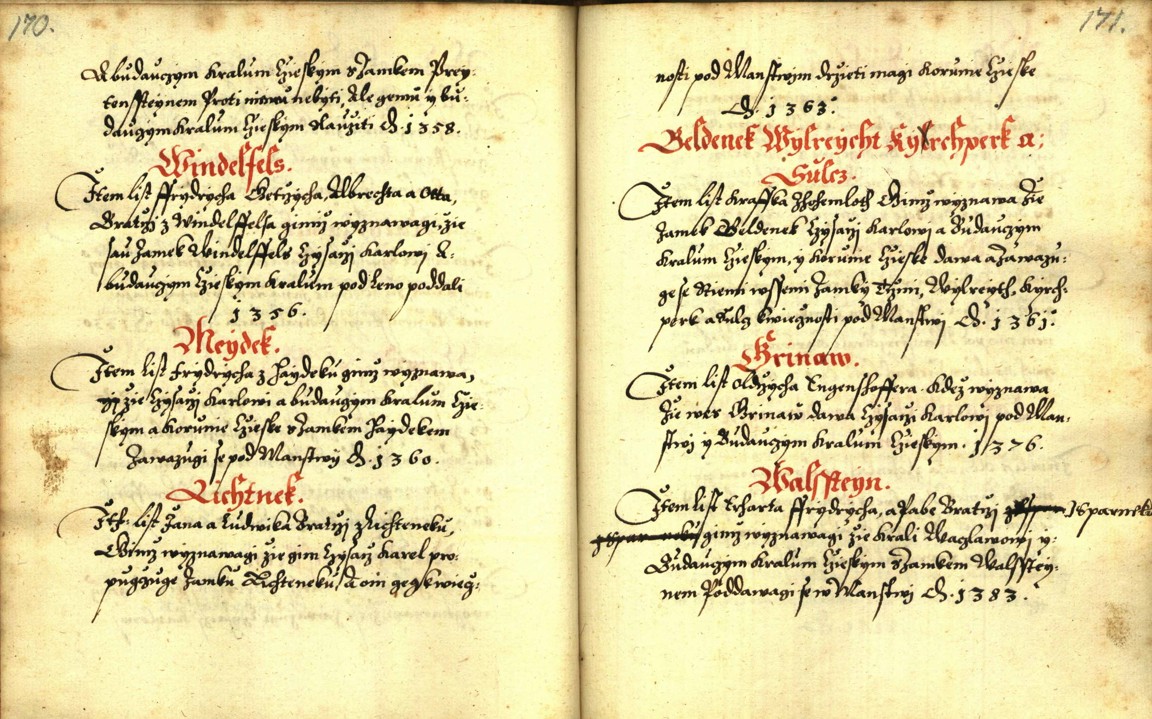 170.
A budauczym Kralum Czieskym s Zamkem Prey-
tenssteynem Proti nebyti, Ale gemu y bu-
dauczym Kralum Czieskym slaužiti A. 1358.
Windelfels.
Item list ffrydrycha Oetrzycha, Albrechta a Otta,
Bratrzi z Windelffelsa gimž wyznawagi, že
sau Zamek Windelffels Czysarzi Karlowi A-
budauczym Czieskym Kralum pod Leno poddali
1356.
Heydek.
Item List Frydrycha z Haydeku gimž wyznawa,
že Czysarzi Karlowi a budauczym Kralum Czie-
skym a Korunie Czieske s Zamkem Haydekem
Zawazugi se pod Manstwij A. 1360.
Lichtnek.
It: list Jana a Ludwika Bratrzi z Lichteneku,
Gimž wyznawagi že gim Czysarz Karel pro-
pugczuge Zamku Lichteneku, a oni geg k wiecz-
171.
nosti pod Manstwim držeti magi Korunie Czieske
A. 1363.
Beldenek Wylreycht Kyrchperk a:
Sulcz.
Item list Kraffta Z Hohenloch Gimž wyznawa že
Zamek Beldenek Czysarzi Karlowi a Budauczym
Kralum Czieskym, y Korunie Czieske dawa a Zawazu-
ge se s tiemi wssemi Zamky Wylreyth, Kyrch-
perk a Sulcz k wiecznosti pod Manstwi A. 1361.
Grinaw.
Item list Oldrzycha Engenshoffera. Kdež wyznawa
že wes Grinaw dawa Czysarzi Karlowi pod Man-
stwi y Budauczym Kralum Czieskym. 1376.
Walssteyn.
Item list Erharta ffrydrycha, a Rabe Bratrzi z Sparneku
gimž wyznawagi že Krali Waczlawowi y-
Budauczym Kralum Czieskym s Zamkem Walsstey-
nem Poddawagi se w Manstwi A. 1383.